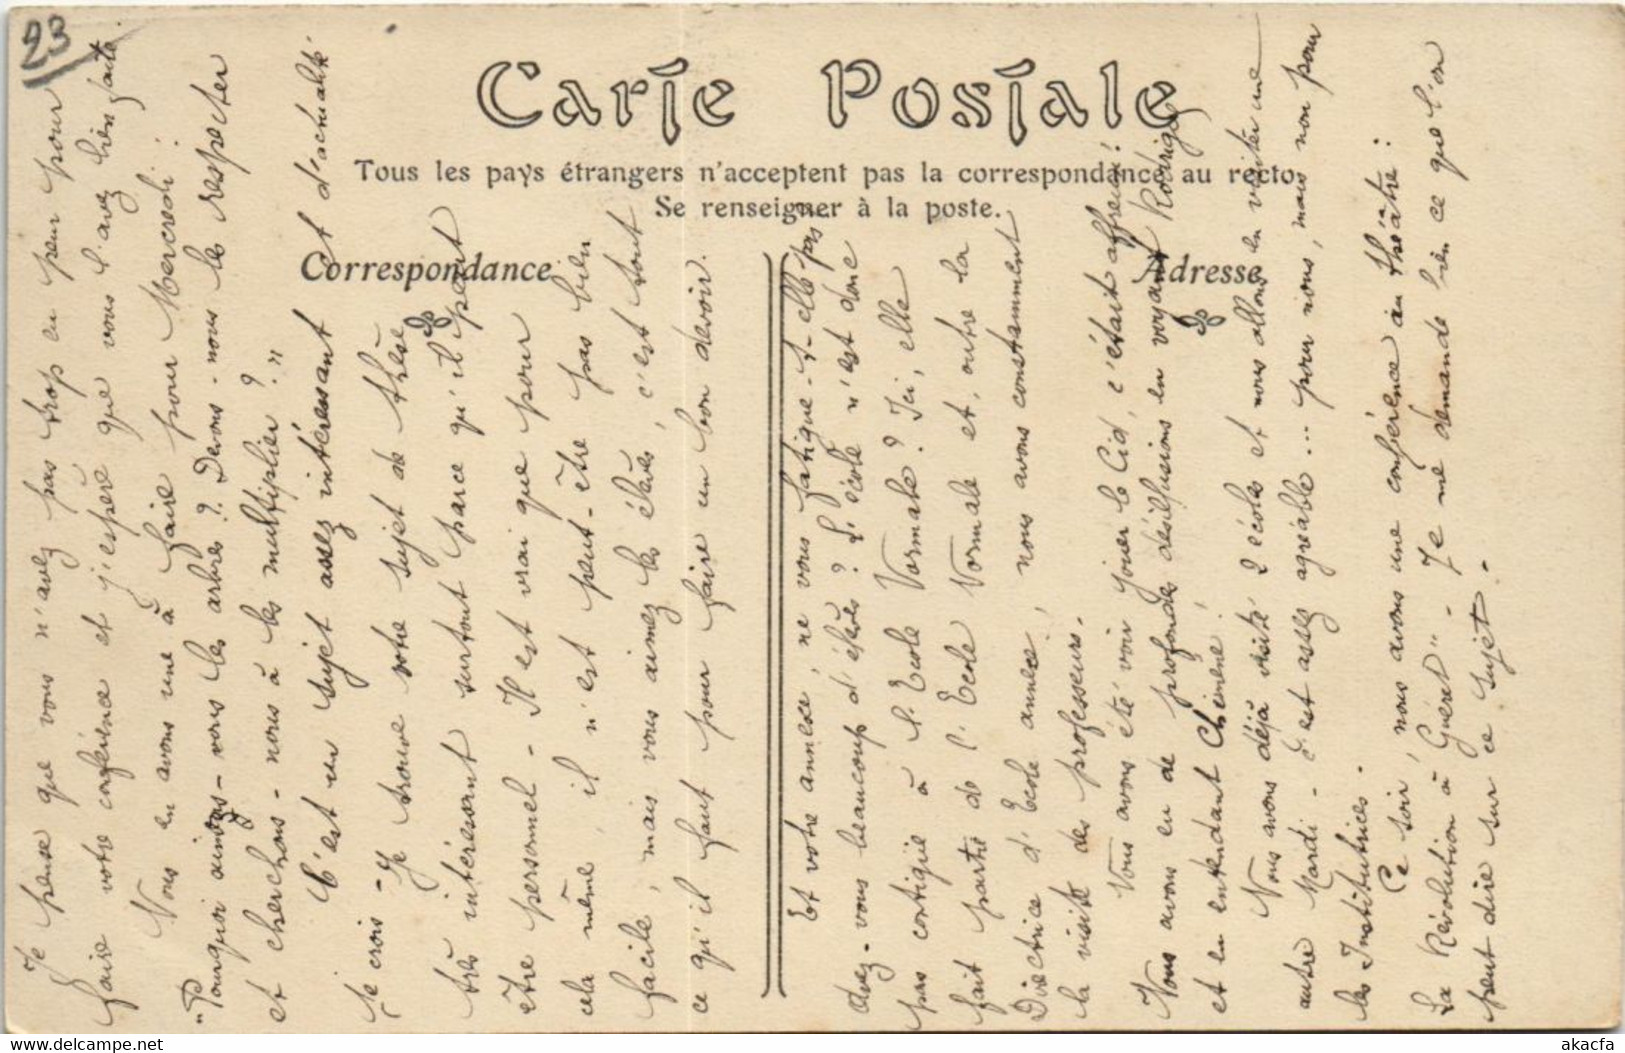 23
Carte Postale
Tous les pays étrangers n'acceptent pas la correspondance au recto.
Se renseigner à la poste.
Correspondance
Adresse
Je pense que vous n'avez pas trop eu peur pour
faire votre conférence et j'espère que vous l'avez bien faite.
Nous en avons une à faire pour Mercredi :
"Pourquoi aimez-vous les arbres ? Devons-nous les respecter
et cherchons-nous à les multiplier ? "
C'est un sujet assez intéressant et d'actualité
je crois - Je trouve votre sujet de thèse
très intéressant surtout parce qu'il peut
être personnel - Il est vrai que pour
cela même, il n'est peut-être pas bien
facile, mais vous aimez les élèves, c'est tout
ce qu'il faut pour faire un bon devoir.
Et votre annexe, ne vous fatigue-t-elle pas
Avez-vous beaucoup d'élèves ? L'école n'est donc
pas contiguë à l'Ecole Normale ? Ici, elle
fait partie de l'Ecole Normale et, outre la
Directrice d'Ecole annexe, nous avons constamment
la visite des professeurs.
Nous avons été voir jouer le Cid, c'était affreux !
Nous avons eu de profondes désillusions en voyant Rodrigue
et en entendant Chimène !
Nous avons déjà visité 2 écoles et nous allons en visiter une
autre Mardi - c'est assez agréable ... pour nous, mais non pour
les Institutrices -
Ce soir, nous avons une conférence au théâtre :
La Révolution à Guéret" - Je me demande bien ce que l'on
peut dire sur ce sujet -
akacfa
www.delcampe.net